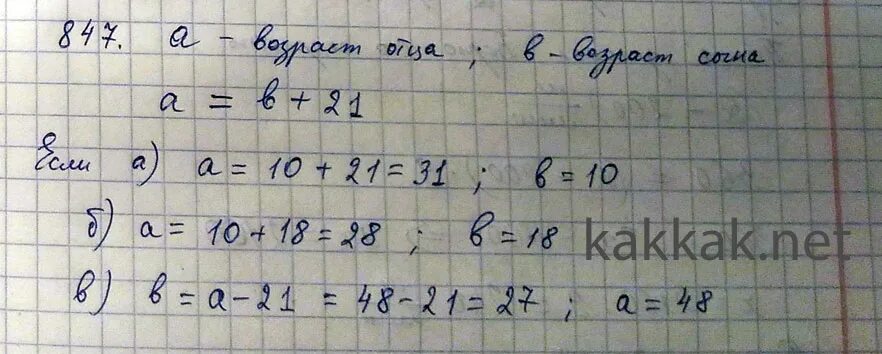 847. а - возраст отца ; в - возраст сына
а = в + 21
Если а) а = 10 + 21 = 31 ; в = 10
б) а = 10 + 18 = 28 ; в = 18
kakkak.net
в) в = а - 21 = 48 - 21 = 27 ; а = 48